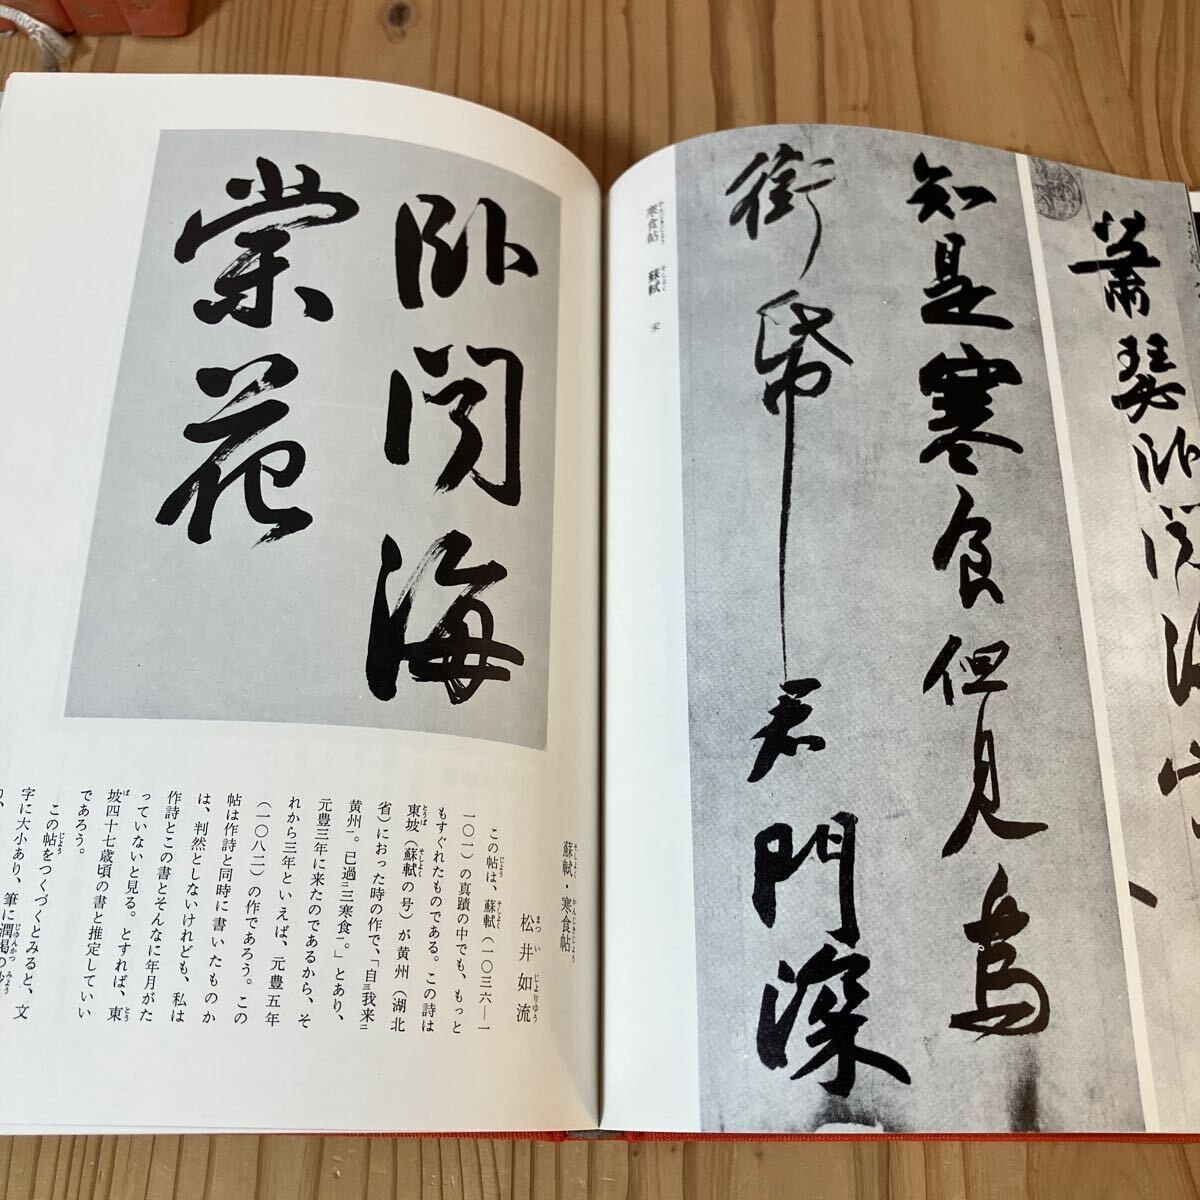 蕭瑟臥聞海棠
知是寒食但見烏
銜帋君門深
寒食帖 蘇軾 宋
臥聞海
棠花
蘇軾・寒食帖
松井如流
この帖は、蘇軾(一〇三六―一
一〇一)の真蹟の中でも、もっと
もすぐれたものである。この詩は
東坡(蘇軾の号)が黄州(湖北
省)におった時の作で、「自三我来二
黄州一。已過二三寒食一。」とあり、
元豊三年に来たのであるから、そ
れから三年といえば、元豊五年
(一〇八二)の作であろう。この
帖は作詩と同時に書いたものか
は、判然としないけれども、私は
作詩とこの書とそんなに年月がた
っていないと見る。とすれば、東
坡四十七歳頃の書と推定していい
であろう。
この帖をつくづくとみると、文
字に大小あり、筆に潤渇の妙